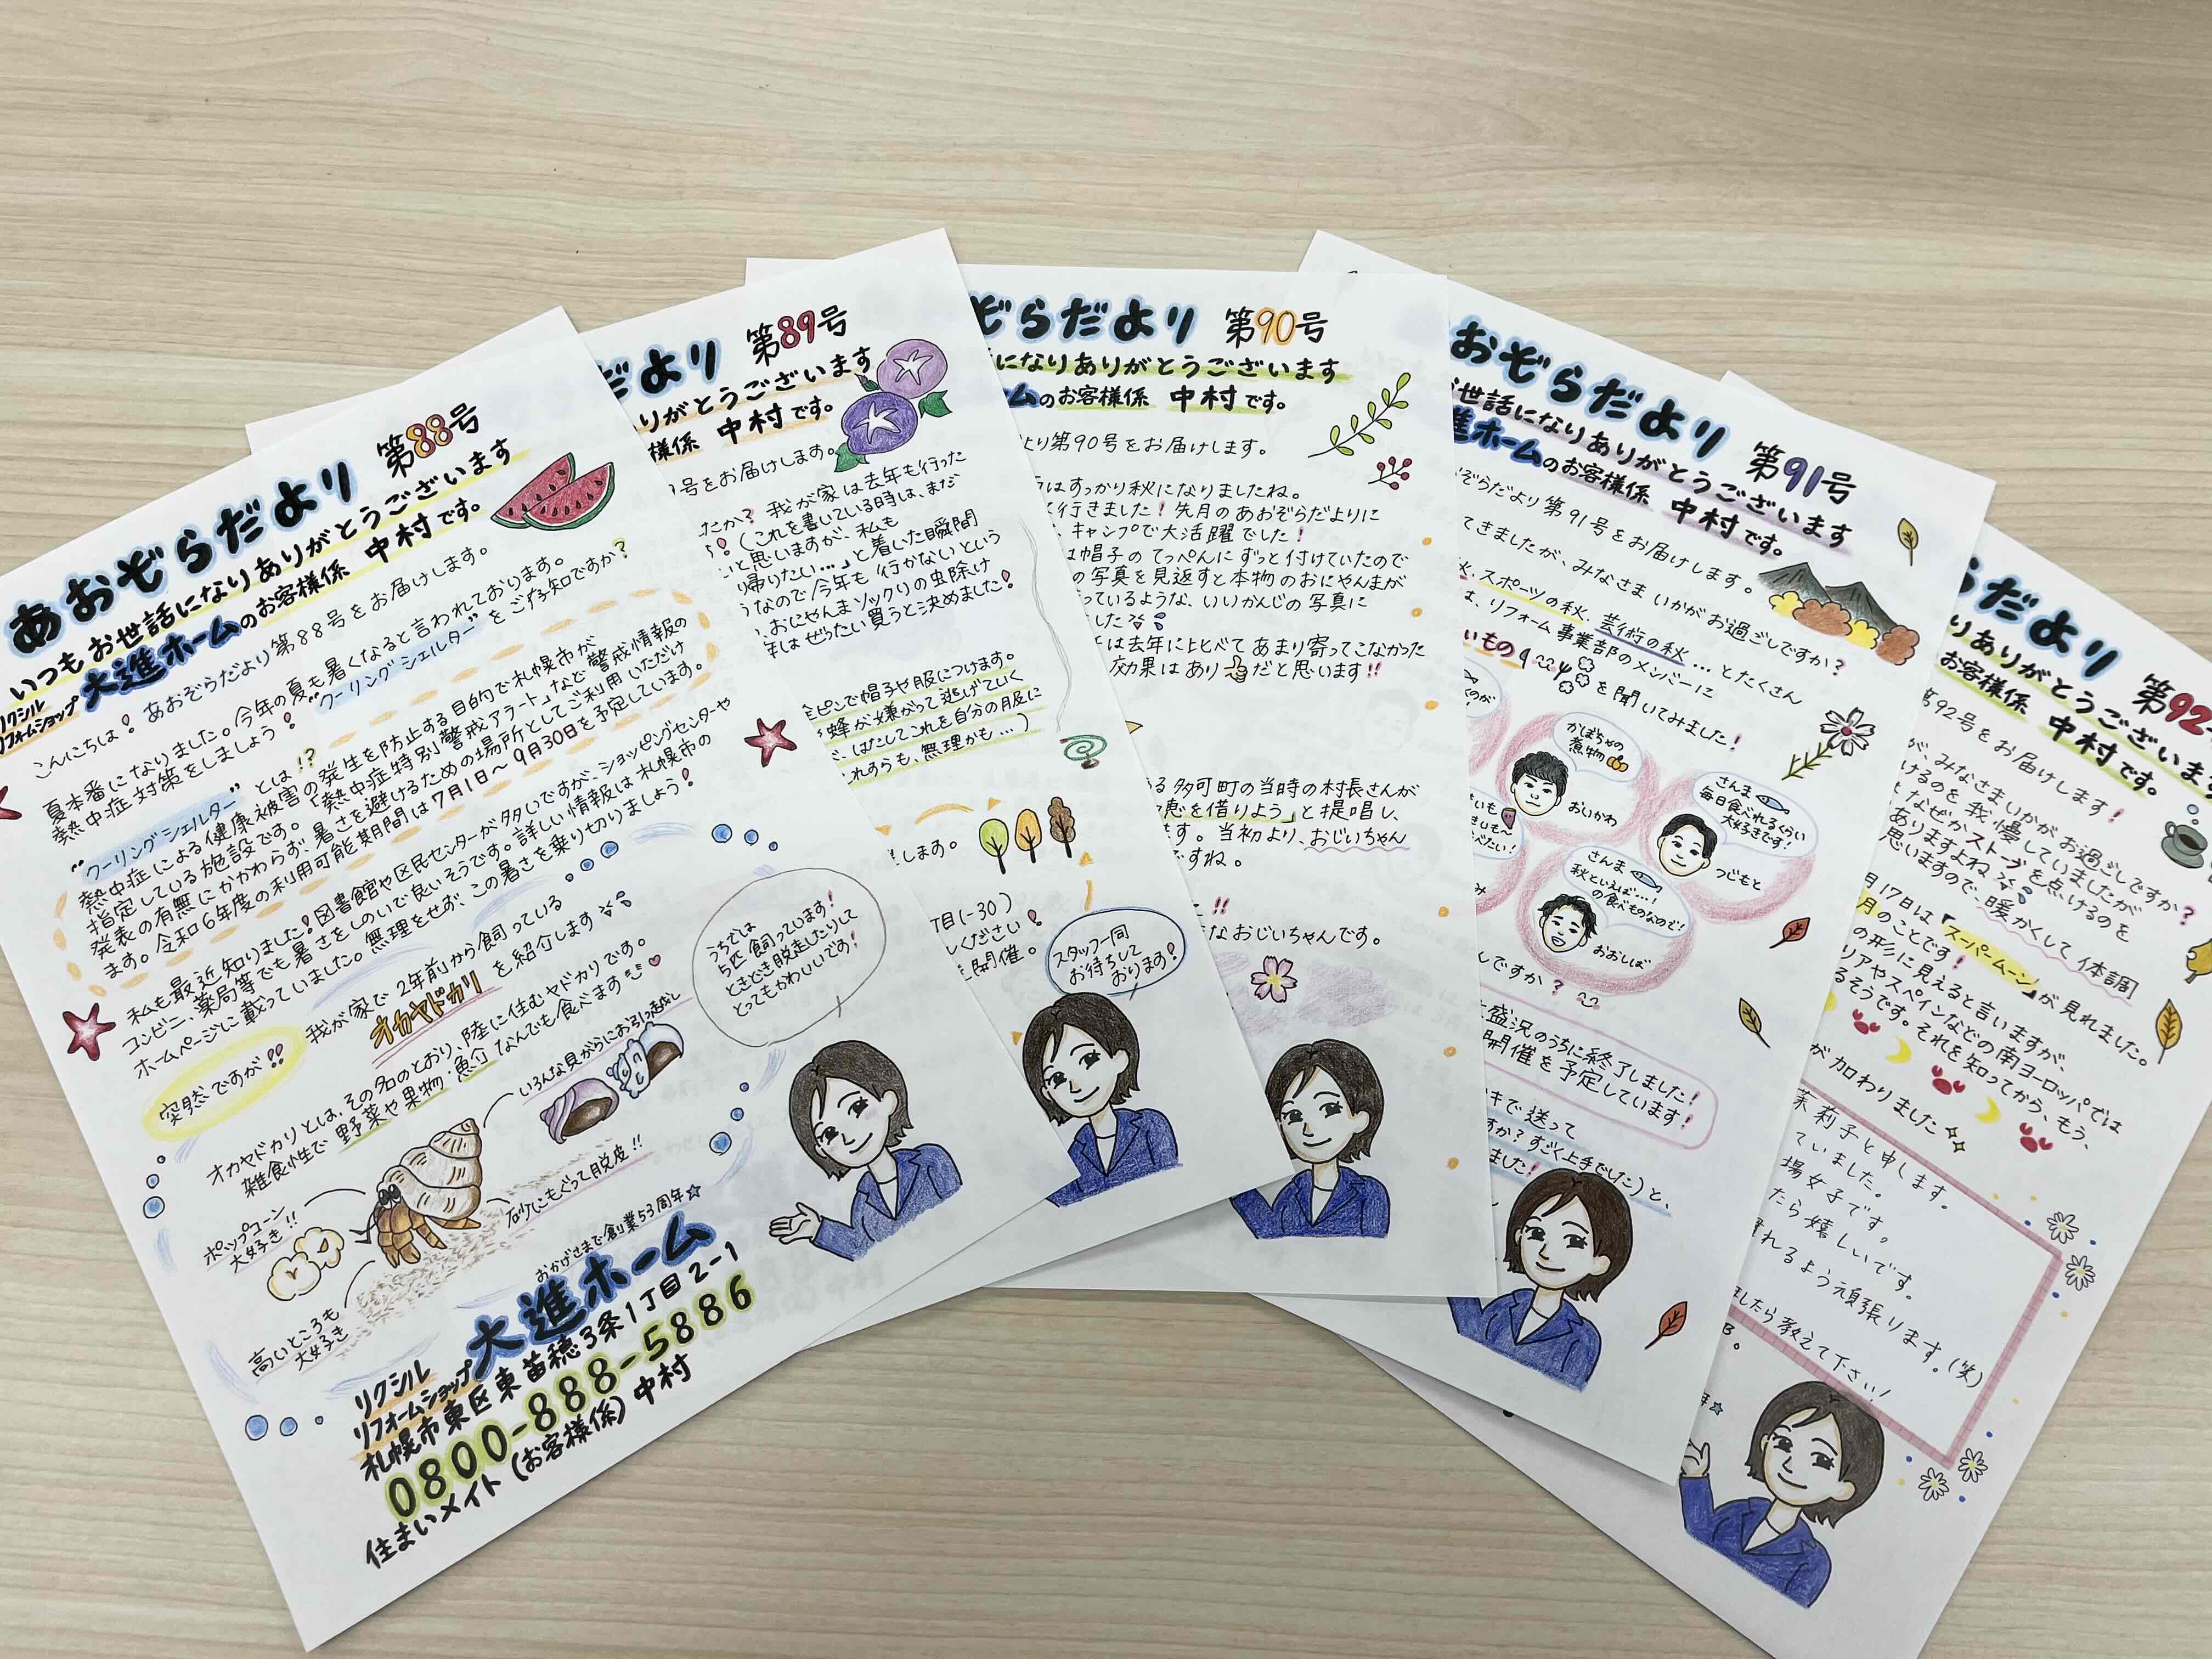 あおぞらだより 第88号
いつもお世話になりありがとうございます
リクシル
リフォームショップ 大進ホームのお客様係 中村です。
こんにちは! あおぞらだより第88号をお届けします。
夏本番になりました。今年の夏も暑くなると言われております。
熱中症対策をしましょう! "クーリングシェルター" をご存知ですか?
"クーリングシェルター" とは!?
熱中症による健康被害の発生を防止する目的で札幌市が
指定している施設です。「熱中症特別警戒アラート」など警戒情報の
発表の有無にかかわらず、暑さを避けるための場所としてご利用いただけ
ます。令和6年度の利用可能期間は7月1日~9月30日を予定しています。
私も最近知りました! 図書館や区民センターが多いですが、ショッピングセンターや
コンビニ、薬局等でも暑さをしのいで良いそうです。詳しい情報は札幌市の
ホームページに載っていました。無理をせず、この暑さを乗り切りましょう!
突然ですが!! 我が家で2年前から飼っている
オカヤドカリ を紹介します
オカヤドカリとは、その名のとおり、陸に住むヤドカリです。
雑食性で 野菜や果物・魚介 なんでも食べます
うちでは
5匹飼っています!
ときどき脱走したりして
とってもかわいいです!
いろんな貝がらにお引っ越し
ポップコーン
大好き!!
砂にもぐって脱皮!!
高いところも
大好き
おかげさまで創業53周年☆
リクシル
リフォームショップ 大進ホーム
札幌市東区東苗穂3条1丁目2-1
0800-888-5886
住まいメイト(お客様係) 中村
だより 第89号
りがとうございます
様係 中村です。
号をお届けします。
たか? 我が家は去年も行った
(これを書いている時は、まだ
いと思いますが、私も
帰りたい…」と着いた瞬間
うなので今年も行かないという
、おにやんまソックリの虫除け
年はぜったい買うと決めました!
全ピンで帽子や服につけます。
蜂が嫌がって逃げていく
、はたしてこれを自分の服に
れすらも、無理かも…)
します。
丁目(-30)
しください!
開催。
スタッフ一同
お待ちして
おります!
ぞらだより 第90号
になりありがとうございます
ムのお客様係 中村です。
より第90号をお届けします。
はすっかり秋になりましたね。
行きました! 先月のあおぞらだよりに
、キャンプで大活躍でした!
は帽子のてっぺんにずっと付けていたので
の写真を見返すと本物のおにやんまが
っているような、いいかんじの写真に
した
は去年に比べてあまり寄ってこなかった
効果はあり だと思います!!
る多可町の当時の村長さんが
恵を借りよう」と提唱し、
ます。当初より、おじいちゃん
ですね。
!!
なおじいちゃんです。
おぞらだより 第91号
世話になりありがとうございます
進ホームのお客様係 中村です。
ぞらだより第91号をお届けします。
てきましたが、みなさまいかがお過ごしですか?
、スポーツの秋、芸術の秋…とたくさん
は、リフォーム事業部のメンバーに
いもの を聞いてみました!
かぼちゃの
煮物
おいかわ
さんま
毎日食べれるくらい
大好きです!
つじもと
さんま
秋といえば…!
の食べものなので!
おおしば
しですか?
盛況のうちに終了しました!
開催を予定しています!
キで送って
すか? すごく上手でした)と、
ました!
らだより 第92
りありがとうございま
お客様係 中村です。
第92号をお届けします!
が、みなさまいかがお過ごしですか?
けるのを我慢していましたが
なぜかストーブを点けるのを
ありますよね
思いますので、暖かくして体調
月17日は「スーパームーン」が見れました。
月のことです!
の形に見えると言いますが、
リアやスペインなどの南ヨーロッパでは
るそうです。それを知ってから、もう、
が加わりました
茉莉子と申します。
ていました。
場女子です。
たら嬉しいです。
れるよう頑張ります。(笑)
ましたら教えて下さい!